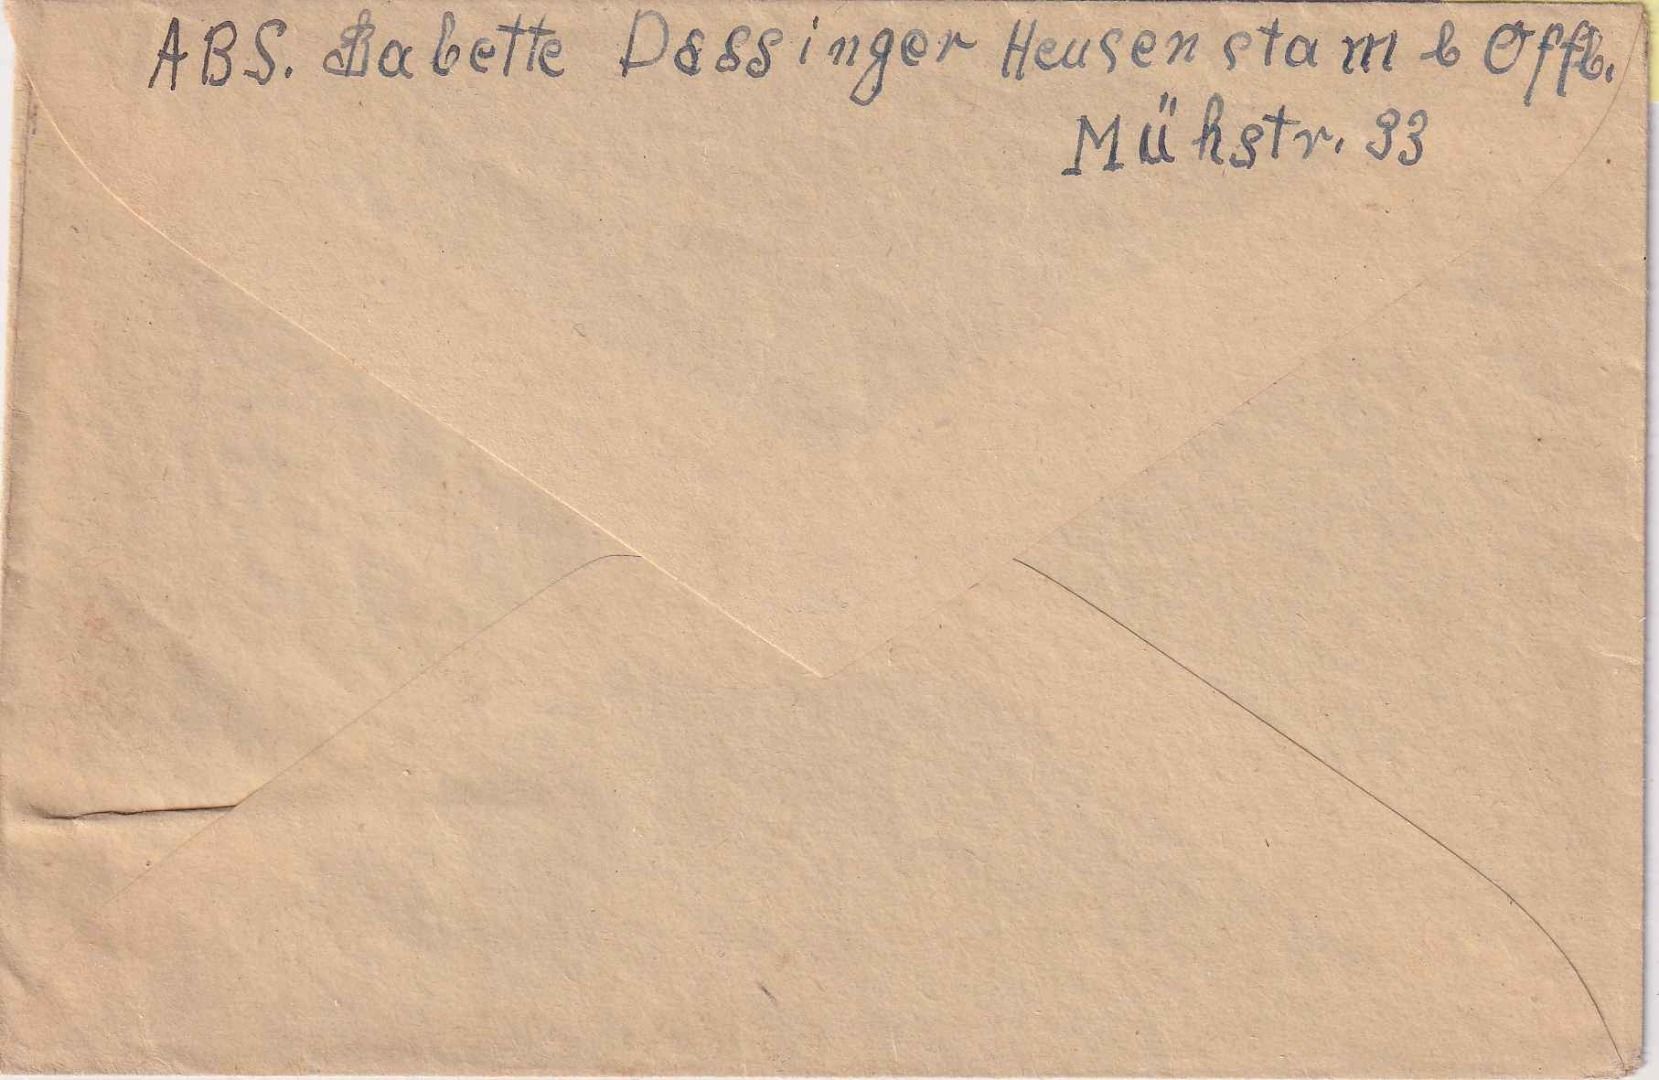 ABS. Babette Dassinger Heusenstam b Offb.
Mühstr. 33